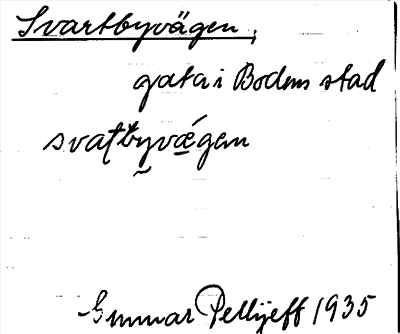 Svartbyvägen,
gata i Bodens stad
svaṭbyvǽgen
Gunnar Pellijeff 1935